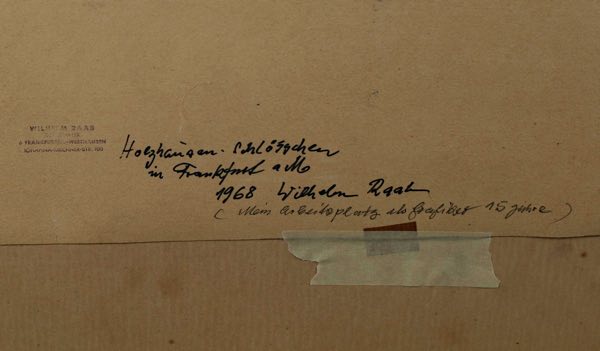 WILHELM RAAB
6 FRANKFURT
Holzhausen-Schlößchen
in Frankfurt a M
1968 Wilhelm Raab
(Mein Arbeitsplatz als Grafiker 15 Jahre)